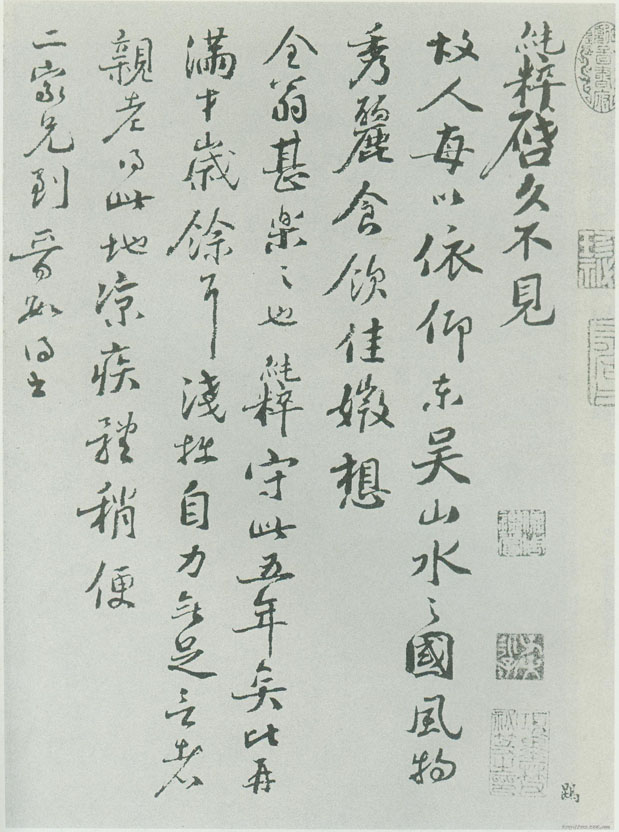 純粹啓久不見
故人每以依仰东吴山水之國風物
秀麗食飲佳媺想
全翁甚樂樂也純粹守此五年矣比再
滿才歲餘耳淺拙自力無足言者
親老得此地凉疾獲稍便
二家兄到晉數得書